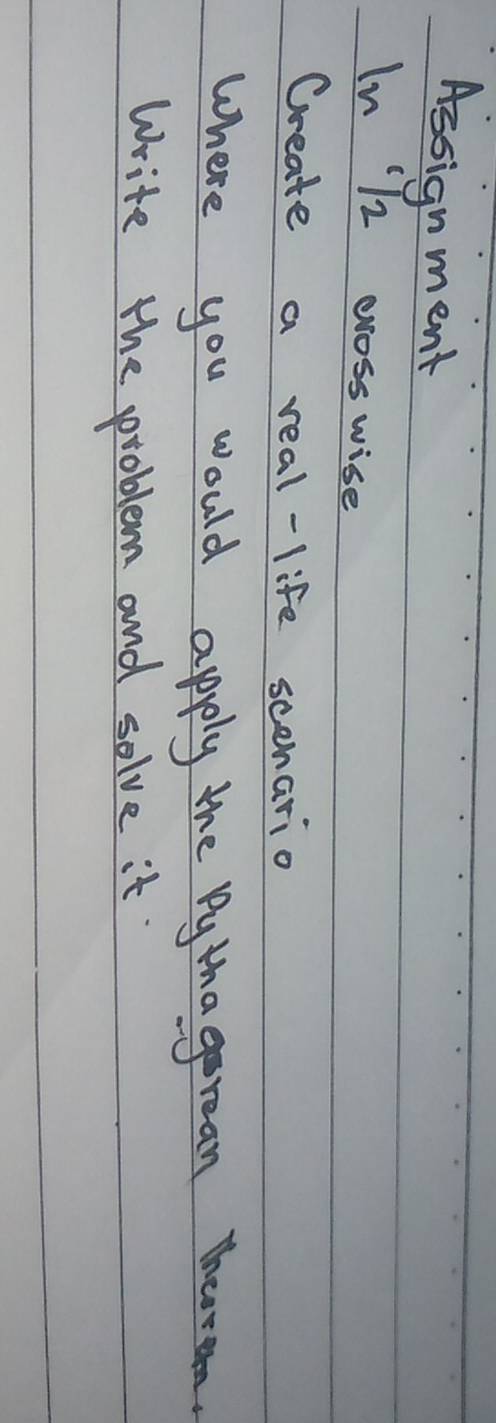 Assignment
In 1/2 crosswise
Create a real-life scenario
Where you would apply the Pythagorean Theorem.
Write the problem and solve it.